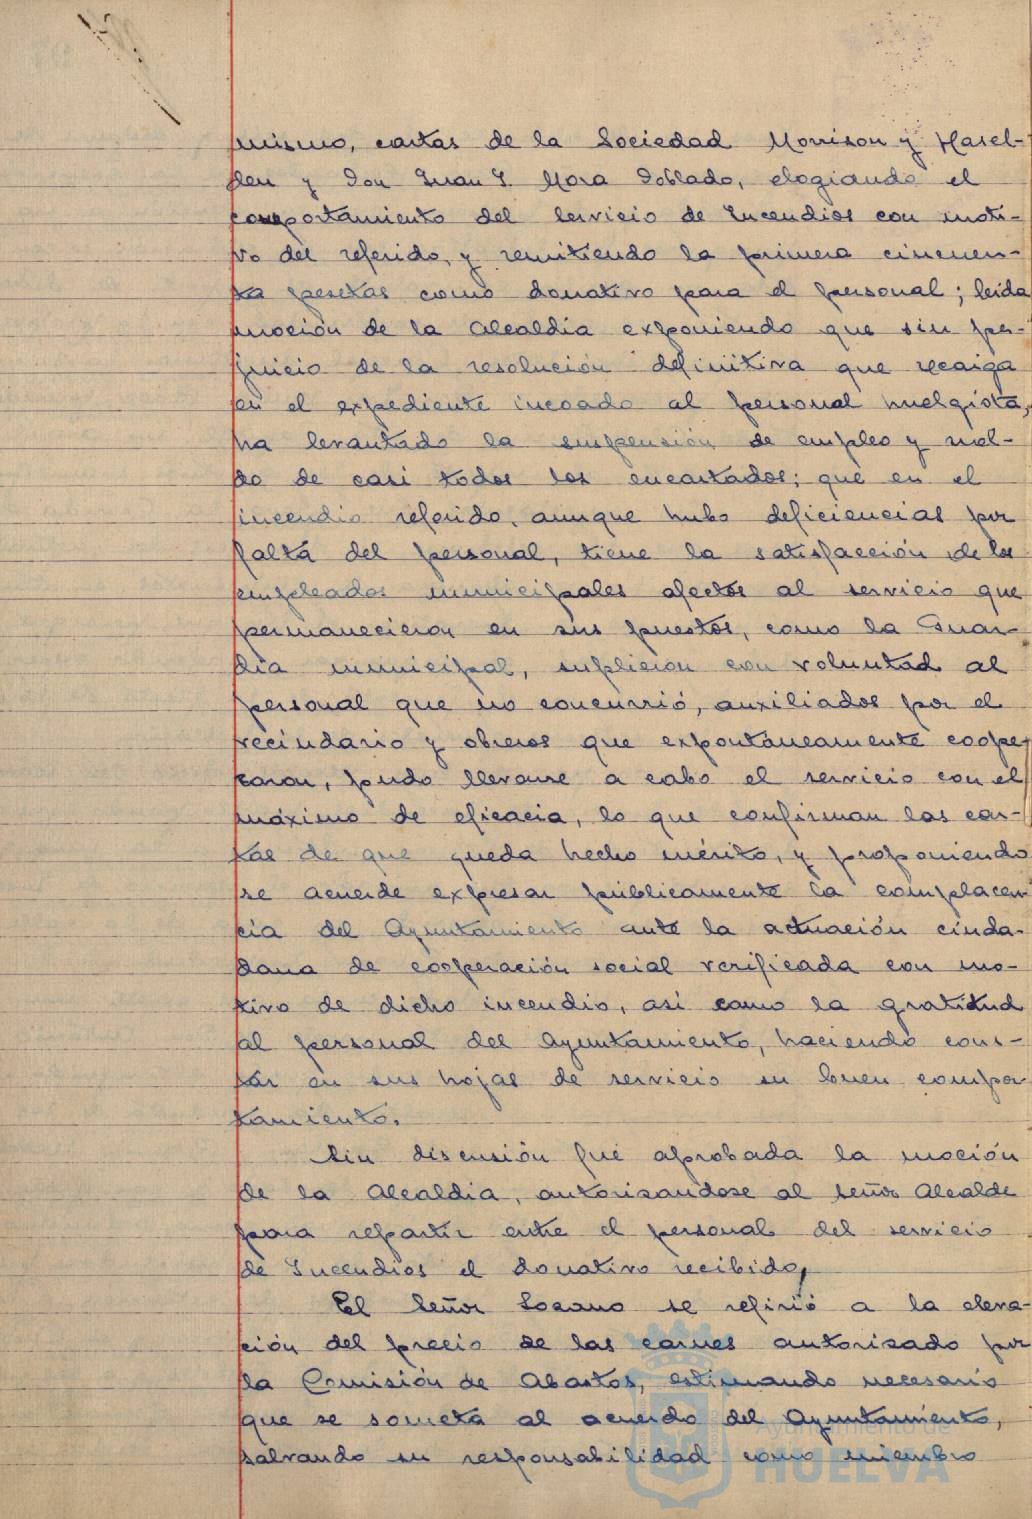 mismo, cartas de la Sociedad Morrison y Hasel-
den y Don Juan J. Mora Doblado, elogiando el
comportamiento del Servicio de Incendios con moti-
vo del referido, y remitiendo la primera cincuen-
ta pesetas como donativo para el personal; leida
moción de la Alcaldia exponiendo que sin per-
juicio de la resolución definitiva que recaiga
en el expediente incoado al personal huelgista,
ha levantado la suspensión de empleo y suel-
do de casi todos los encartados; que en el
incendio referido, aunque hubo deficiencias por
falta del personal, tiene la satisfacción de los
empleados municipales afectos al servicio que
permanecieron en sus puestos, como la Guar-
dia municipal, suplieron con voluntad al
personal que no concurrió, auxiliados por el
vecindario y obreros que expontáneamente coope-
raron, pudo llevarse a cabo el servicio con el
máximo de eficacia, lo que confirman las car-
tas de que queda hecho mérito, y proponiendo
se acuerde expresar públicamente la complacen-
cia del Ayuntamiento ante la actuación ciuda-
dana de cooperación social verificada con mo-
tivo de dicho incendio, asi como la gratitud
al personal del Ayuntamiento, haciendo cons-
tar en sus hojas de servicio su buen compor
tamiento.
Sin discusión fué aprobada la moción
de la Alcaldia, autorisandose al señor Alcalde
para repartir entre el personal del servicio
de Incendios el donativo recibido,
El Señor Lozano se refirió a la eleva-
ción del precio de las carnes autorisado por
la Comisión de Abastos, estimando necesario
que se someta al acuerdo del Ayuntamiento,
salvando su responsabilidad como miembro
Ayuntamiento de
HUELVA